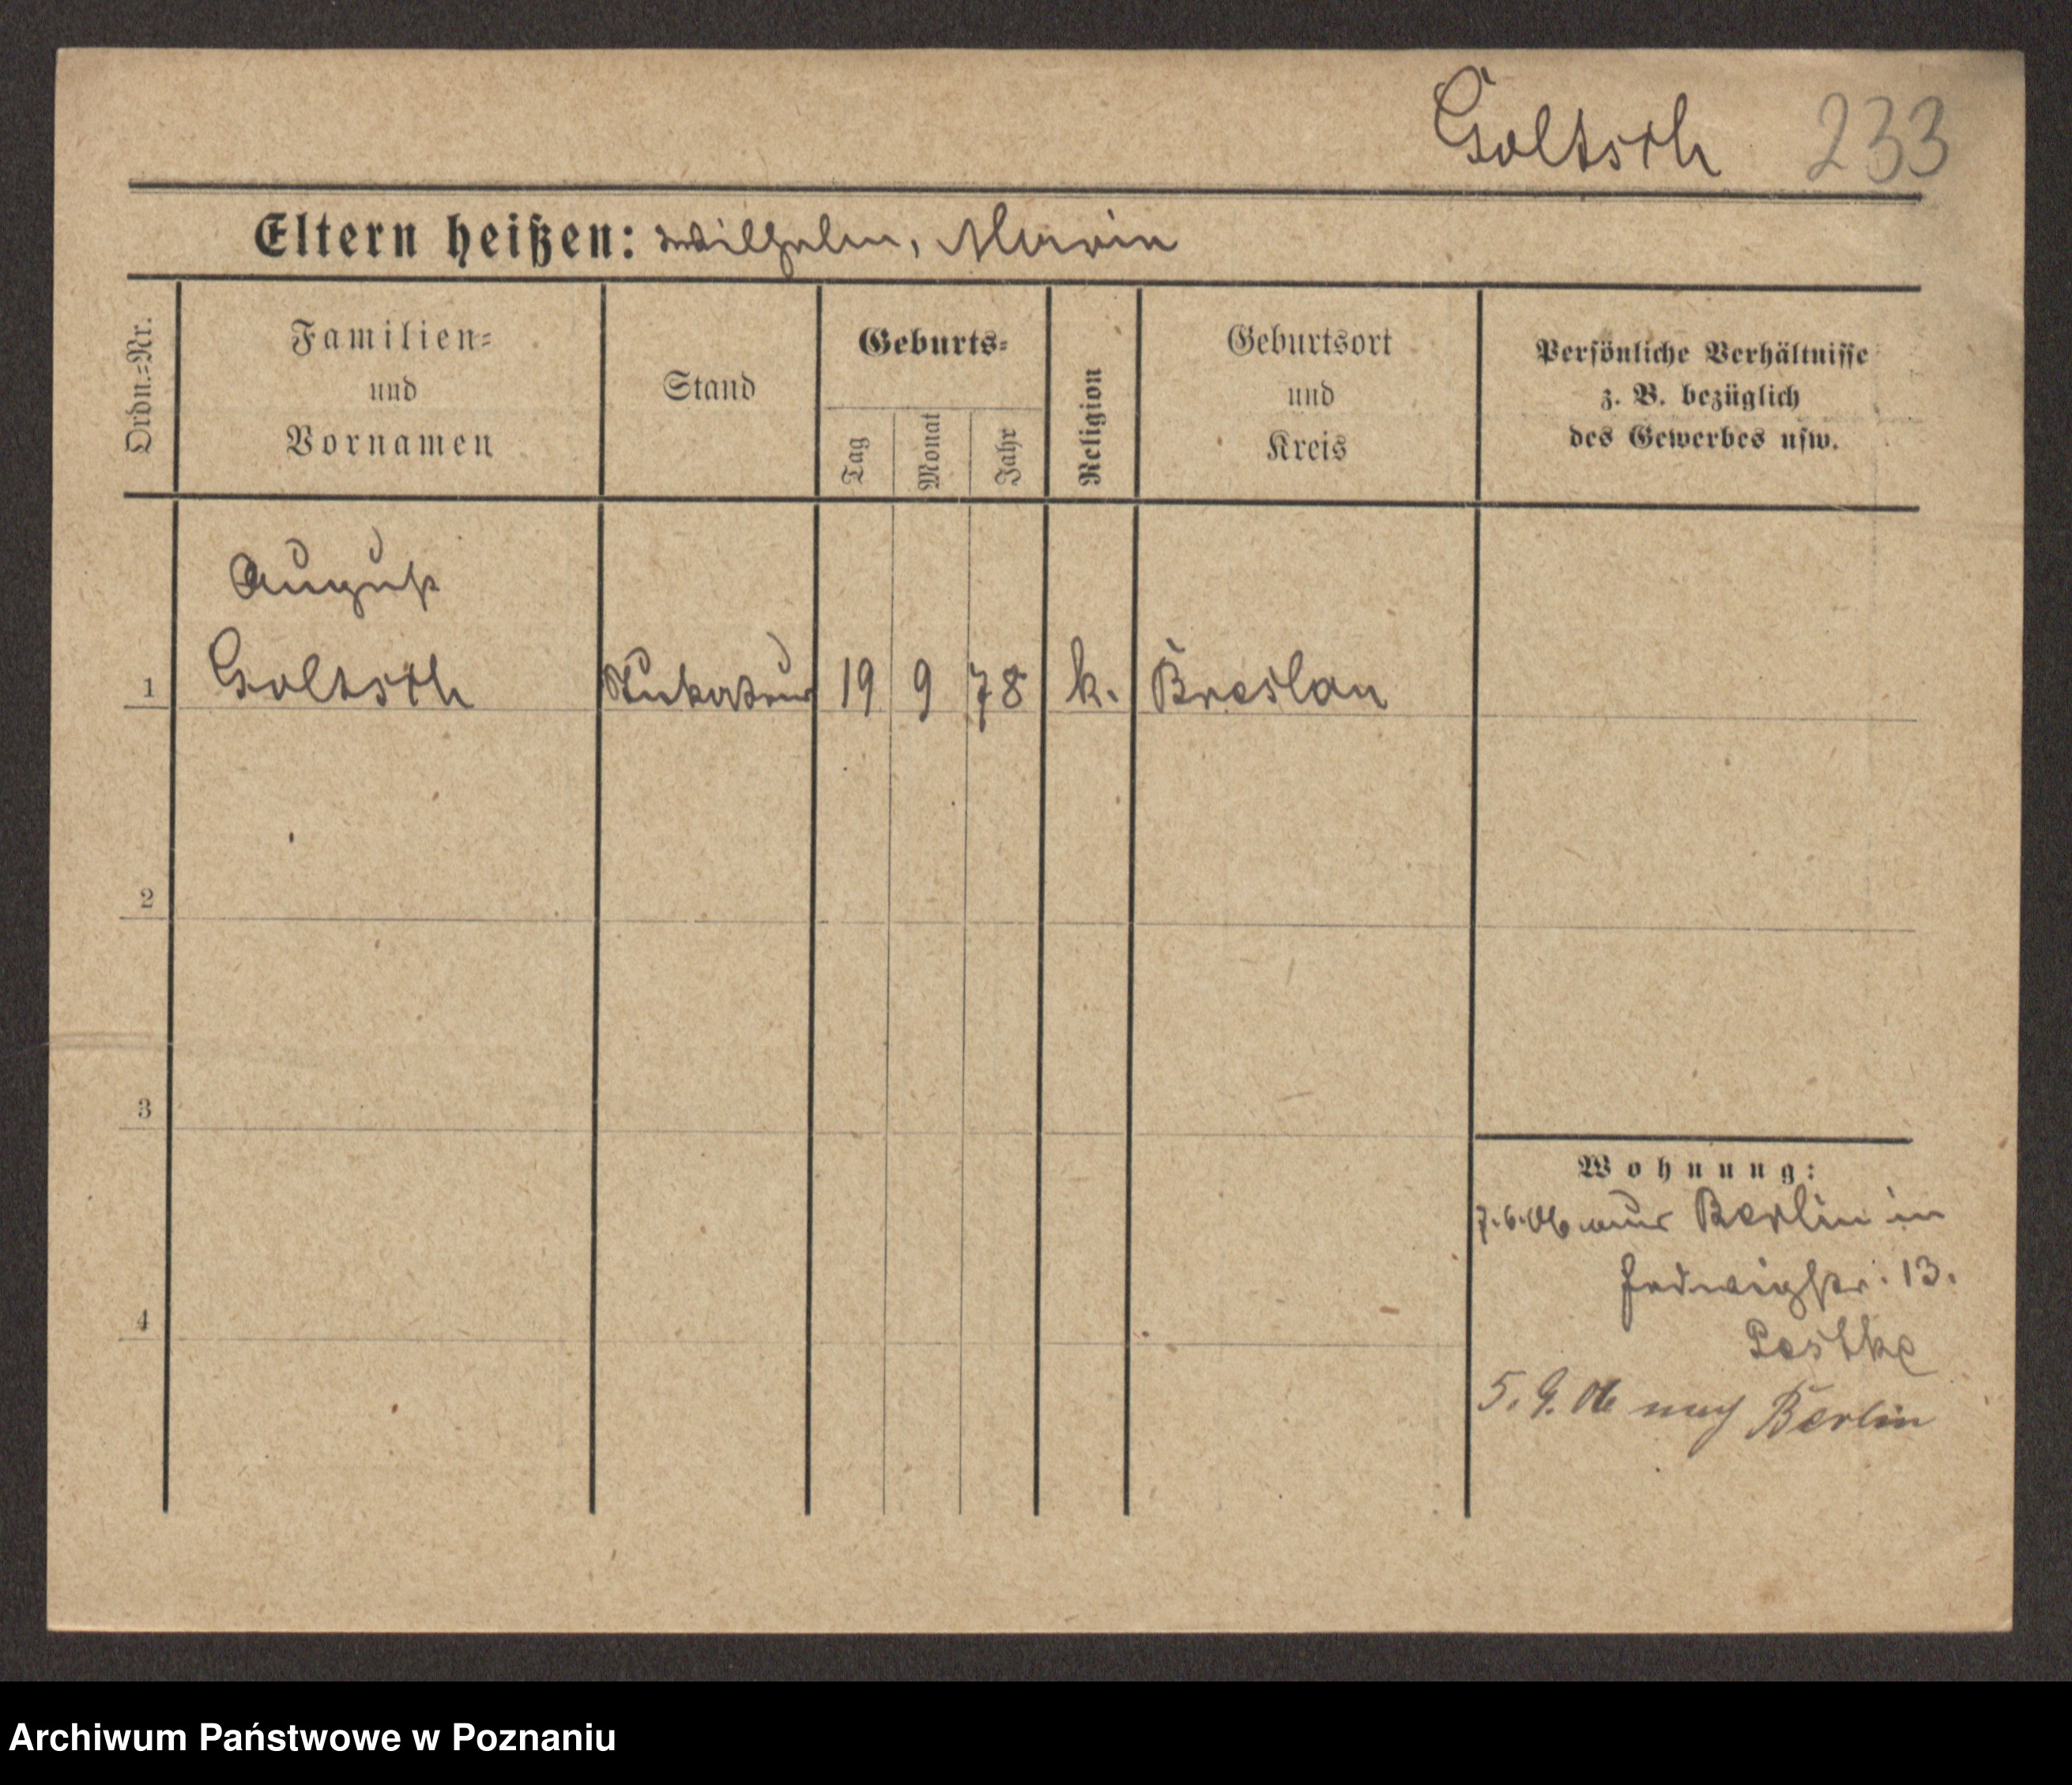 Goltsch 233
Eltern heißen: Wilhelm, Maria
Ordn.-Nr.
Familien-
und
Vornamen
Stand
Geburts-
Tag
Monat
Jahr
Religion
Geburtsort
und
Kreis
Persönliche Verhältnisse
z. B. bezüglich
des Gewerbes usw.
August
1 Goltsch Stukateur 19 9 78 k. Breslau
2
3
4
Wohnung:
7.6.06 aus Berlin in
Hedwigstr. 13.
Peschke
5. 9. 06 nach Berlin
Archiwum Państwowe w Poznaniu